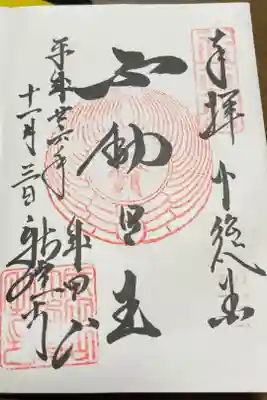 奉拝
不動明王
成田山
平成廿六年
十一月三日
新勝寺